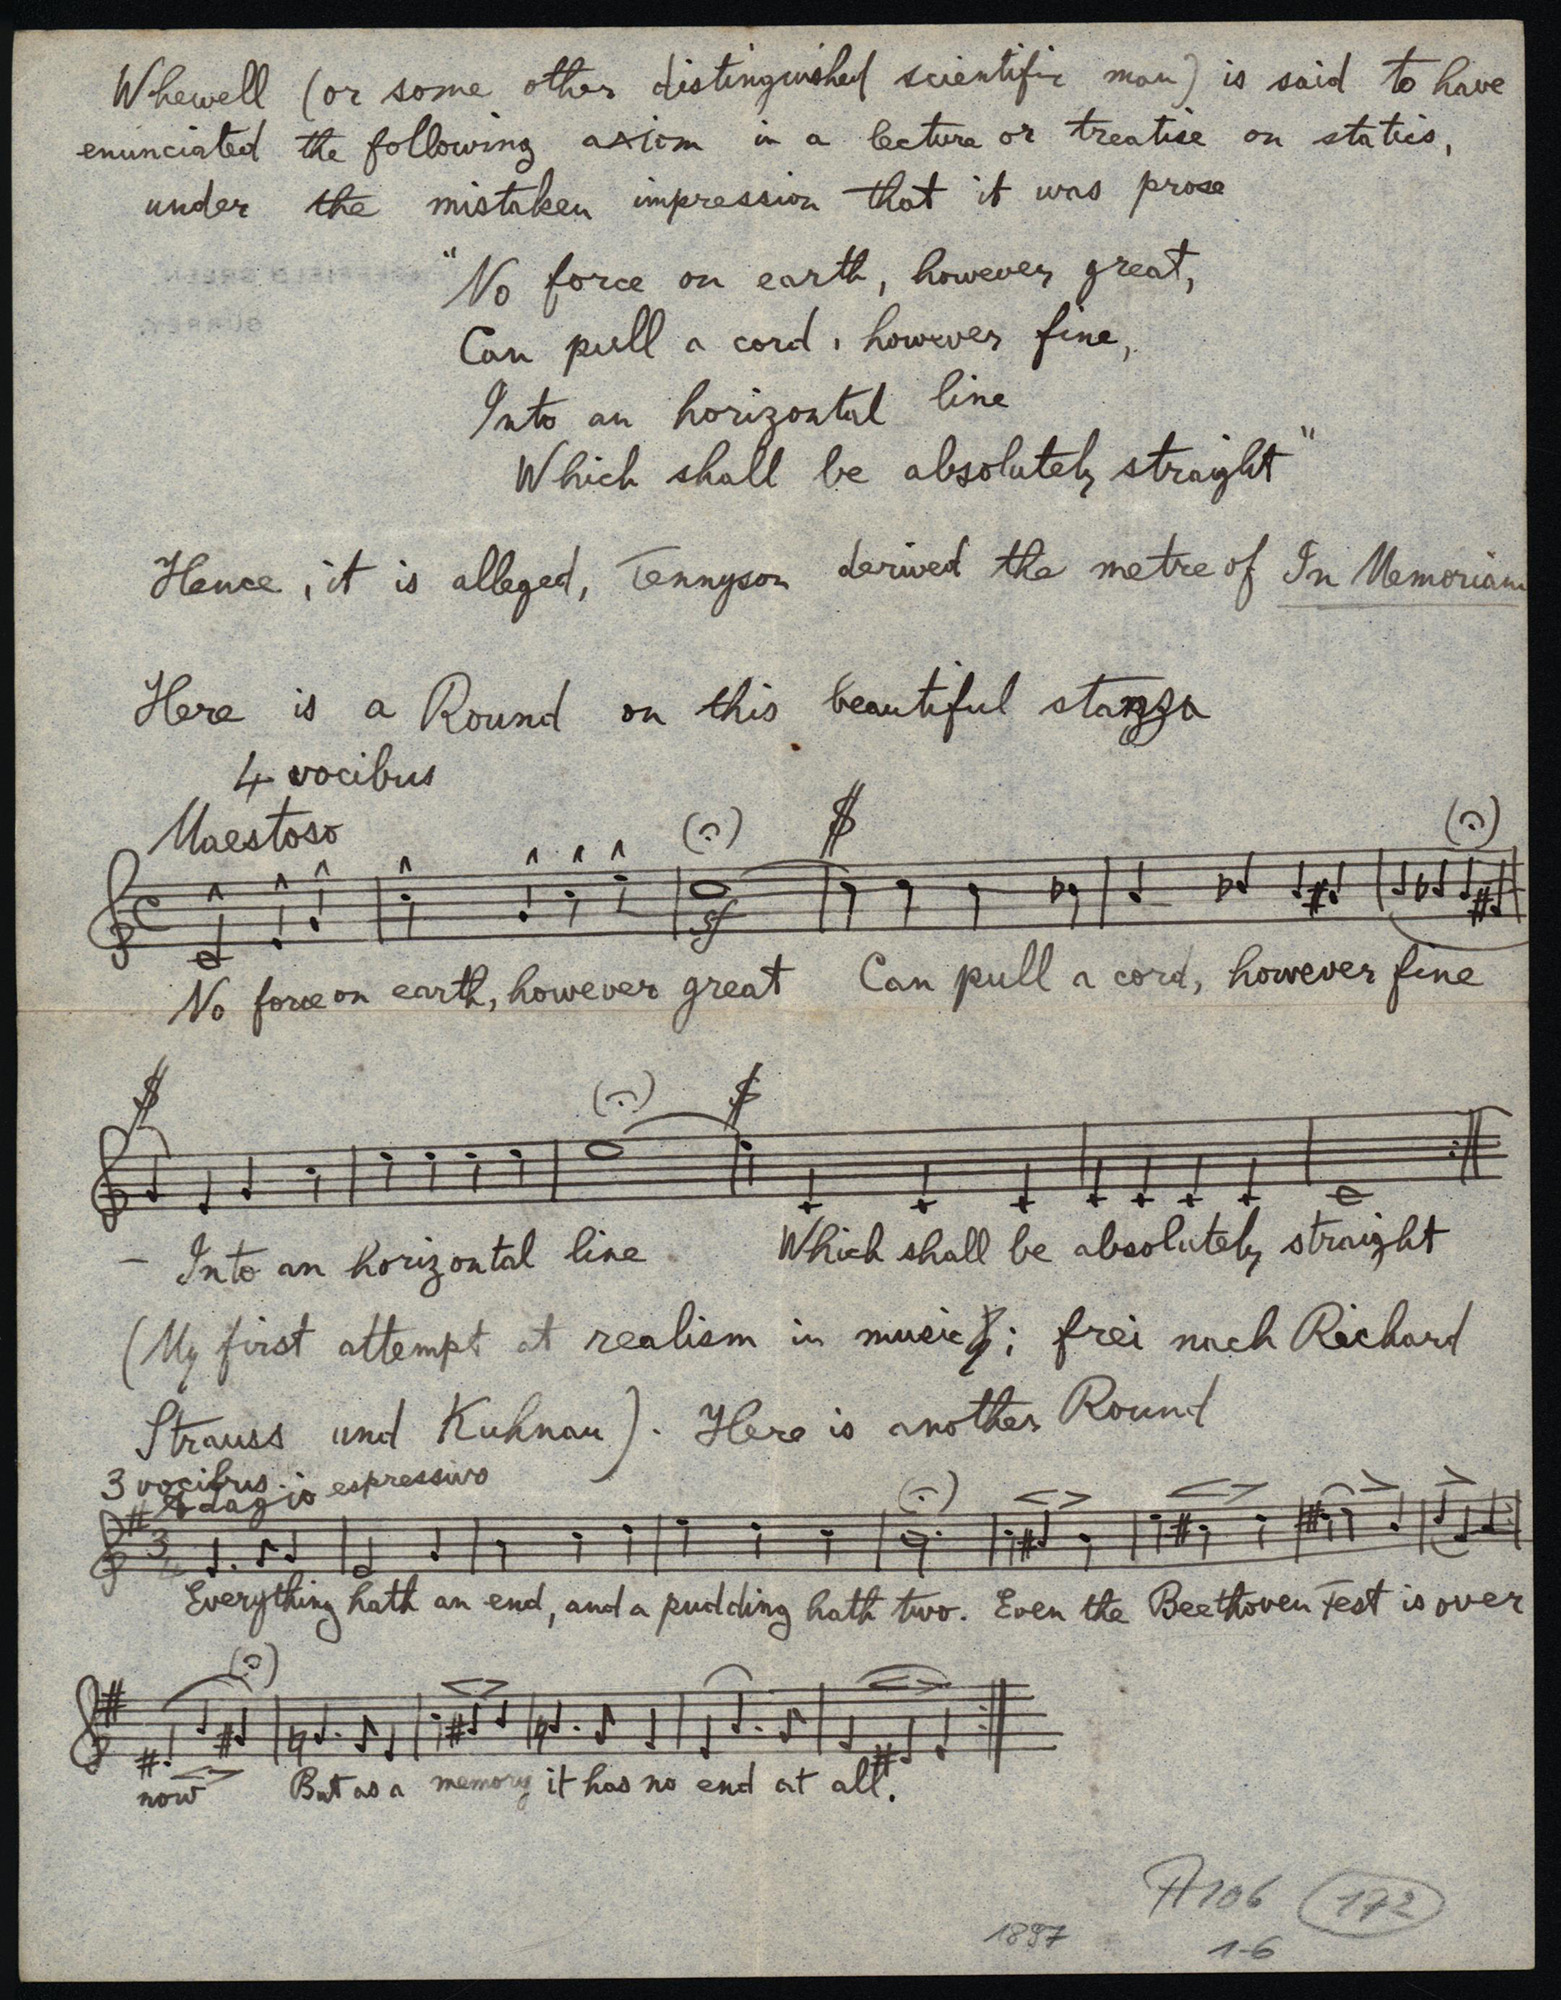 Whewell (or some other distinguished scientific man) is said to have
enunciated the following axiom in a lecture or treatise on statics,
under the mistaken impression that it was prose
"No force on earth, however great,
Can pull a cord, however fine,
Into an horizontal line
Which shall be absolutely straight"
Hence, it is alleged, Tennyson derived the metre of In Memoriam
Here is a Round on this beautiful stanza
4 vocibus
Maestoso
sf
No force on earth, however great Can pull a cord, however fine
– Into an horizontal line Which shall be absolutely straight
(My first attempt at realism in music; frei nach Richard
Strauss und Kuhnau). Here is another Round
3 vocibus.
Adagio espressivo
3
4
Everything hath an end, and a pudding hath two. Even the Beethoven Fest is over
now But as a memory it has no end at all.
A106 172
1897 1-6